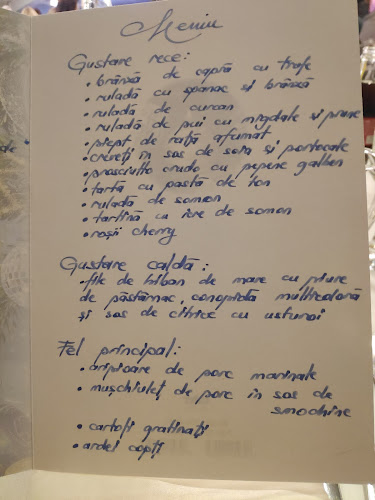 Meniu
Gustare rece:
• brânză de capră cu trufe
• ruladă cu spanac și brânză
• ruladă de curcan
• ruladă de pui cu migdale și prune
• piept de rață afumat
• creveți în sos de soia și portocale
• prosciutto crudo cu pepene galben
• tartă cu pastă de ton
• ruladă de somon
• tartină cu icre de somon
• roșii cherry
Gustare caldă:
• file de biban de mare cu piure
de păstârnac, conopidă multicoloră
și sos de citrice cu usturoi
Fel principal:
• aripioare de porc marinate
• mușchiuleț de porc în sos de
smochine
• cartofi gratinați
• ardei copți